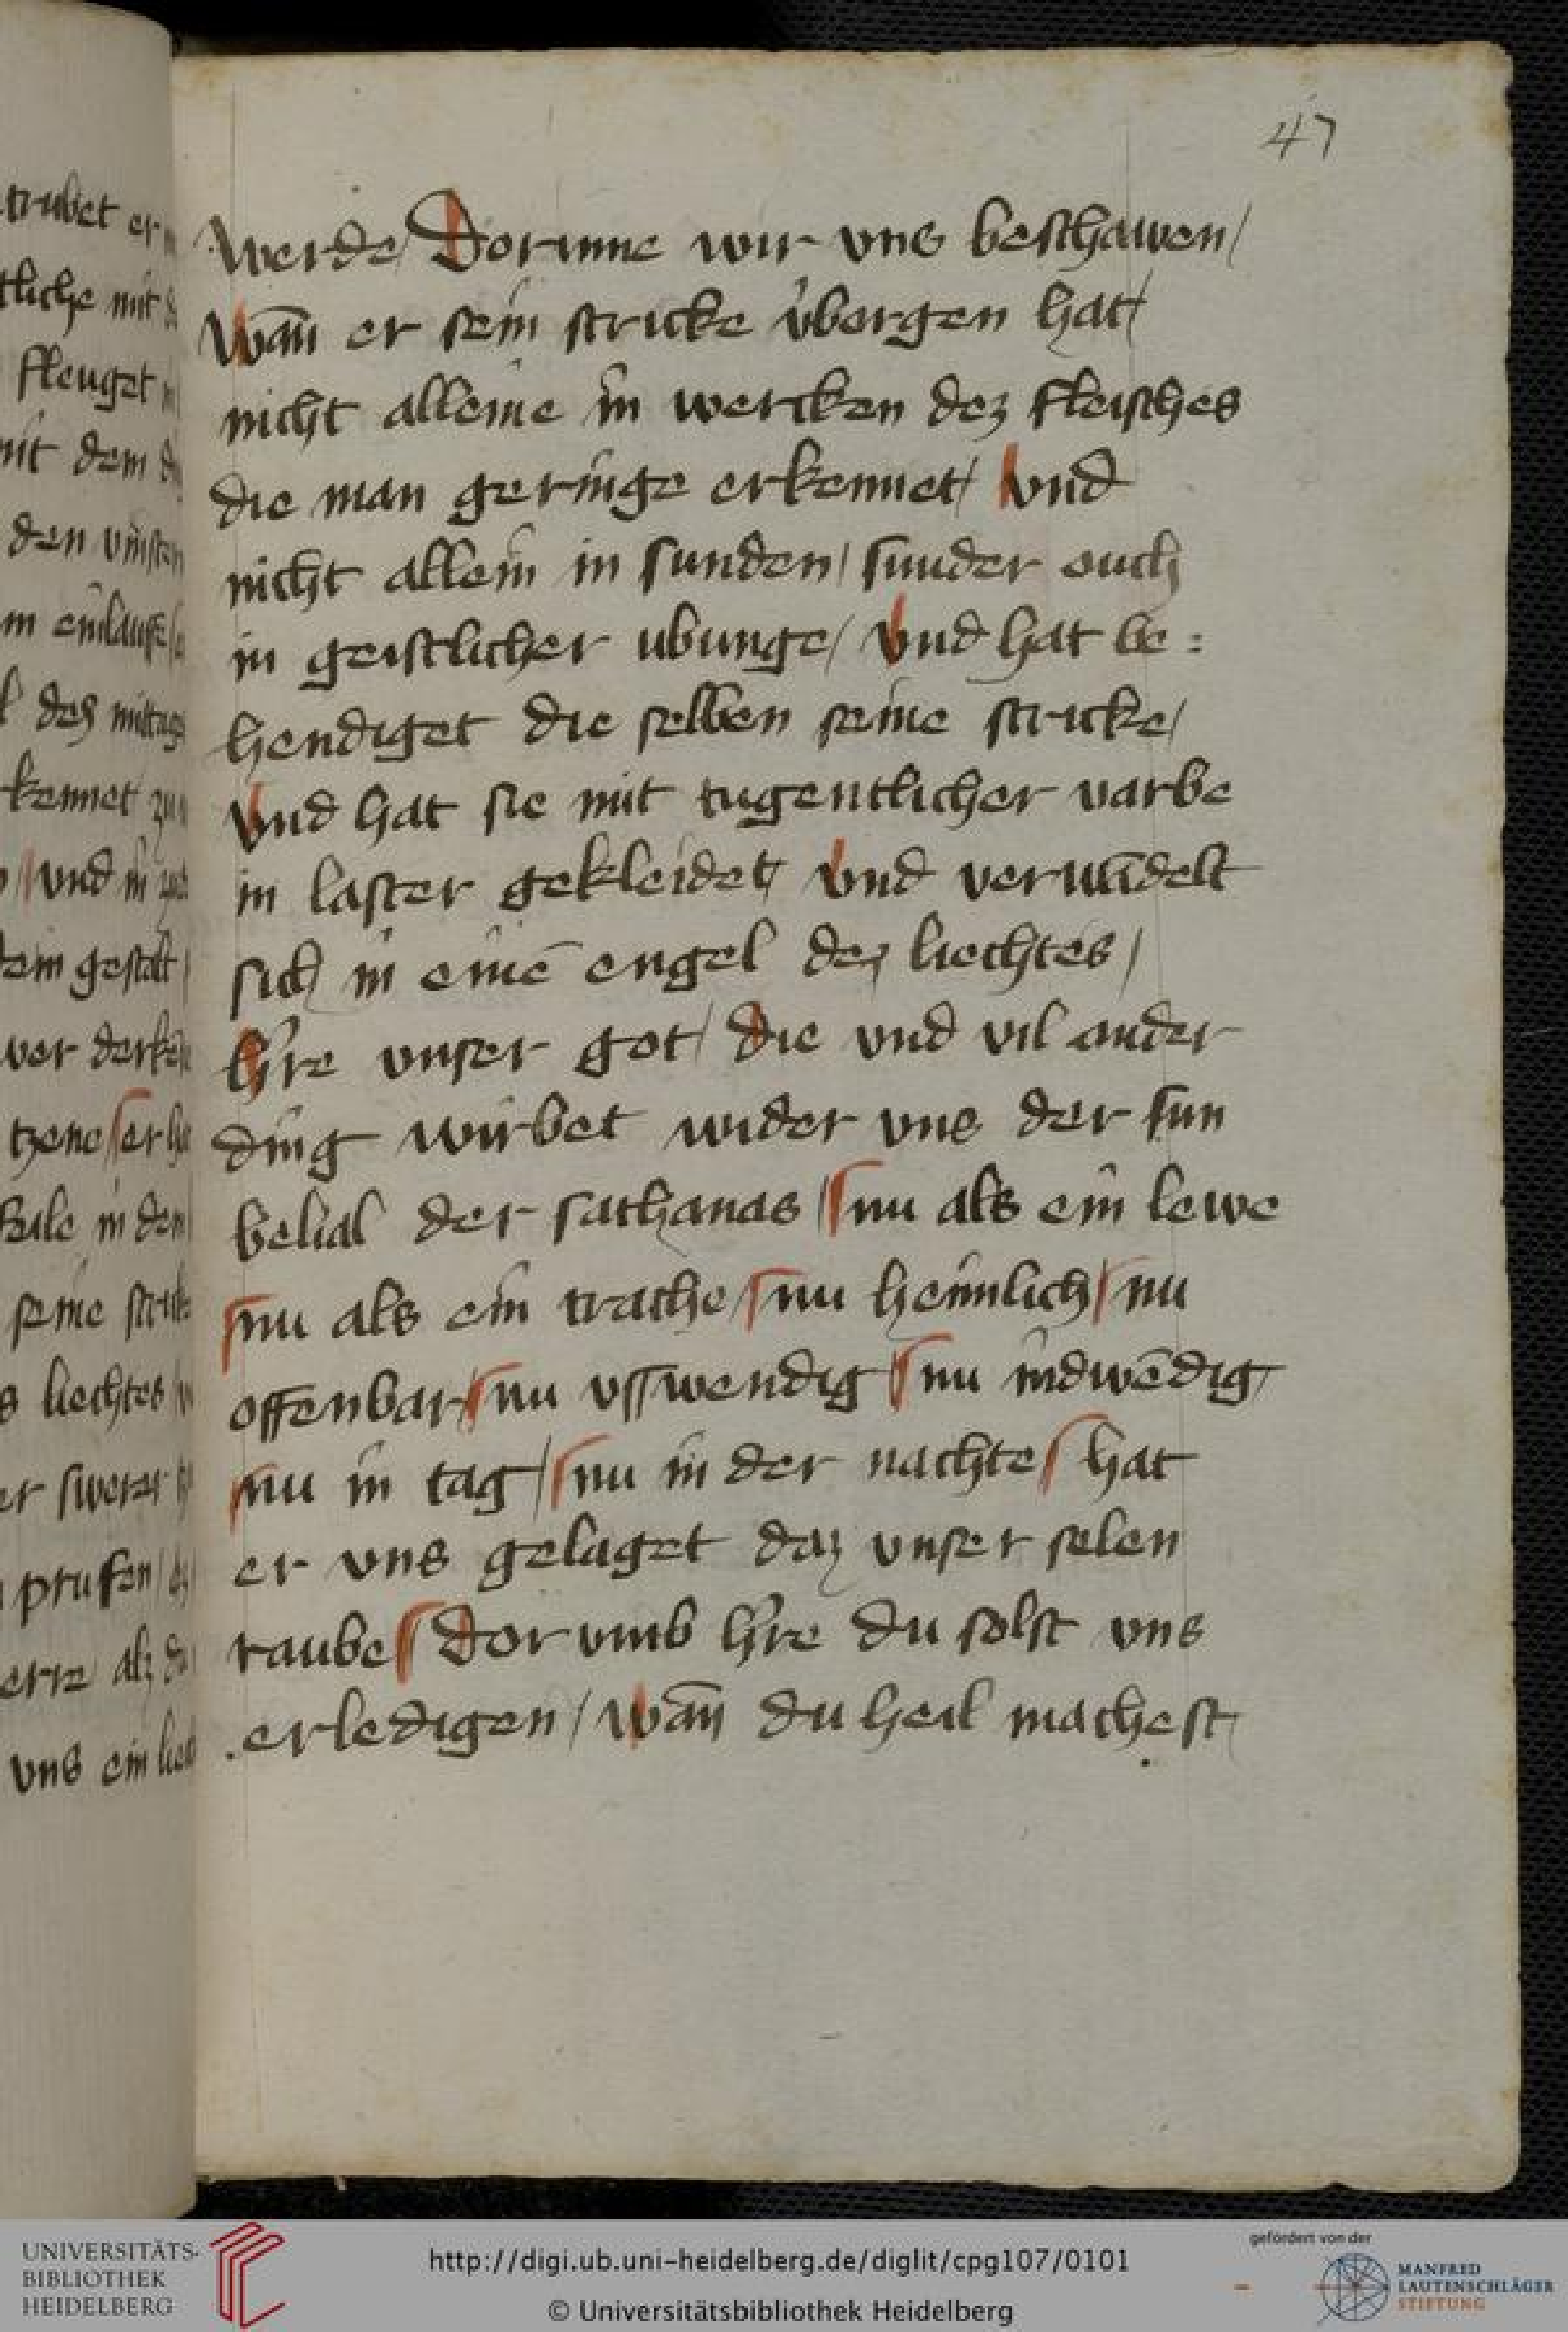 47
werde / Dorinne wir vns beschawen /
Wañ er sein stricke v̓borgen hat /
nicht alleine in wercken dez fleisches
die man geringe erkennet / vnd
nicht allein in sunden / sunder ouch
in geistlicher ubunge / vnd hat be=
hendiget die selben seine stricke /
vnd hat sie mit tugentlicher varbe
in laster gekleidet / vnd verwādelt
sich in einē engel dez liechtes /
h̓re vnser got / die vnd vil ander
ding wirbet wider vns der sun
belial der sathanas / nu als ein lewe
nu als ein trache / nu heimlich / nu
offenbar / nu vsswendig / nu indwēdig
nu in tag / nu in der nachte / hat
er vns gelaget daz vnser selen
raube / Dor vmb h̓re du solst vns
erledigen / wañ du heil machest
trubet er
tliche mit
fleuget
mit dem
den vinsten
l dez mittags
kennet zu
vnd in
gestalt
tzene er
in den
seine
liechtes
er swerer
prufen
alz du
vns ein
UNIVERSITÄTS-
BIBLIOTHEK
HEIDELBERG
http://digi.ub.uni-heidelberg.de/diglit/cpg107/0101
© Universitätsbibliothek Heidelberg
gefördert von der
MANFRED
LAUTENSCHLÄGER
STIFTUNG